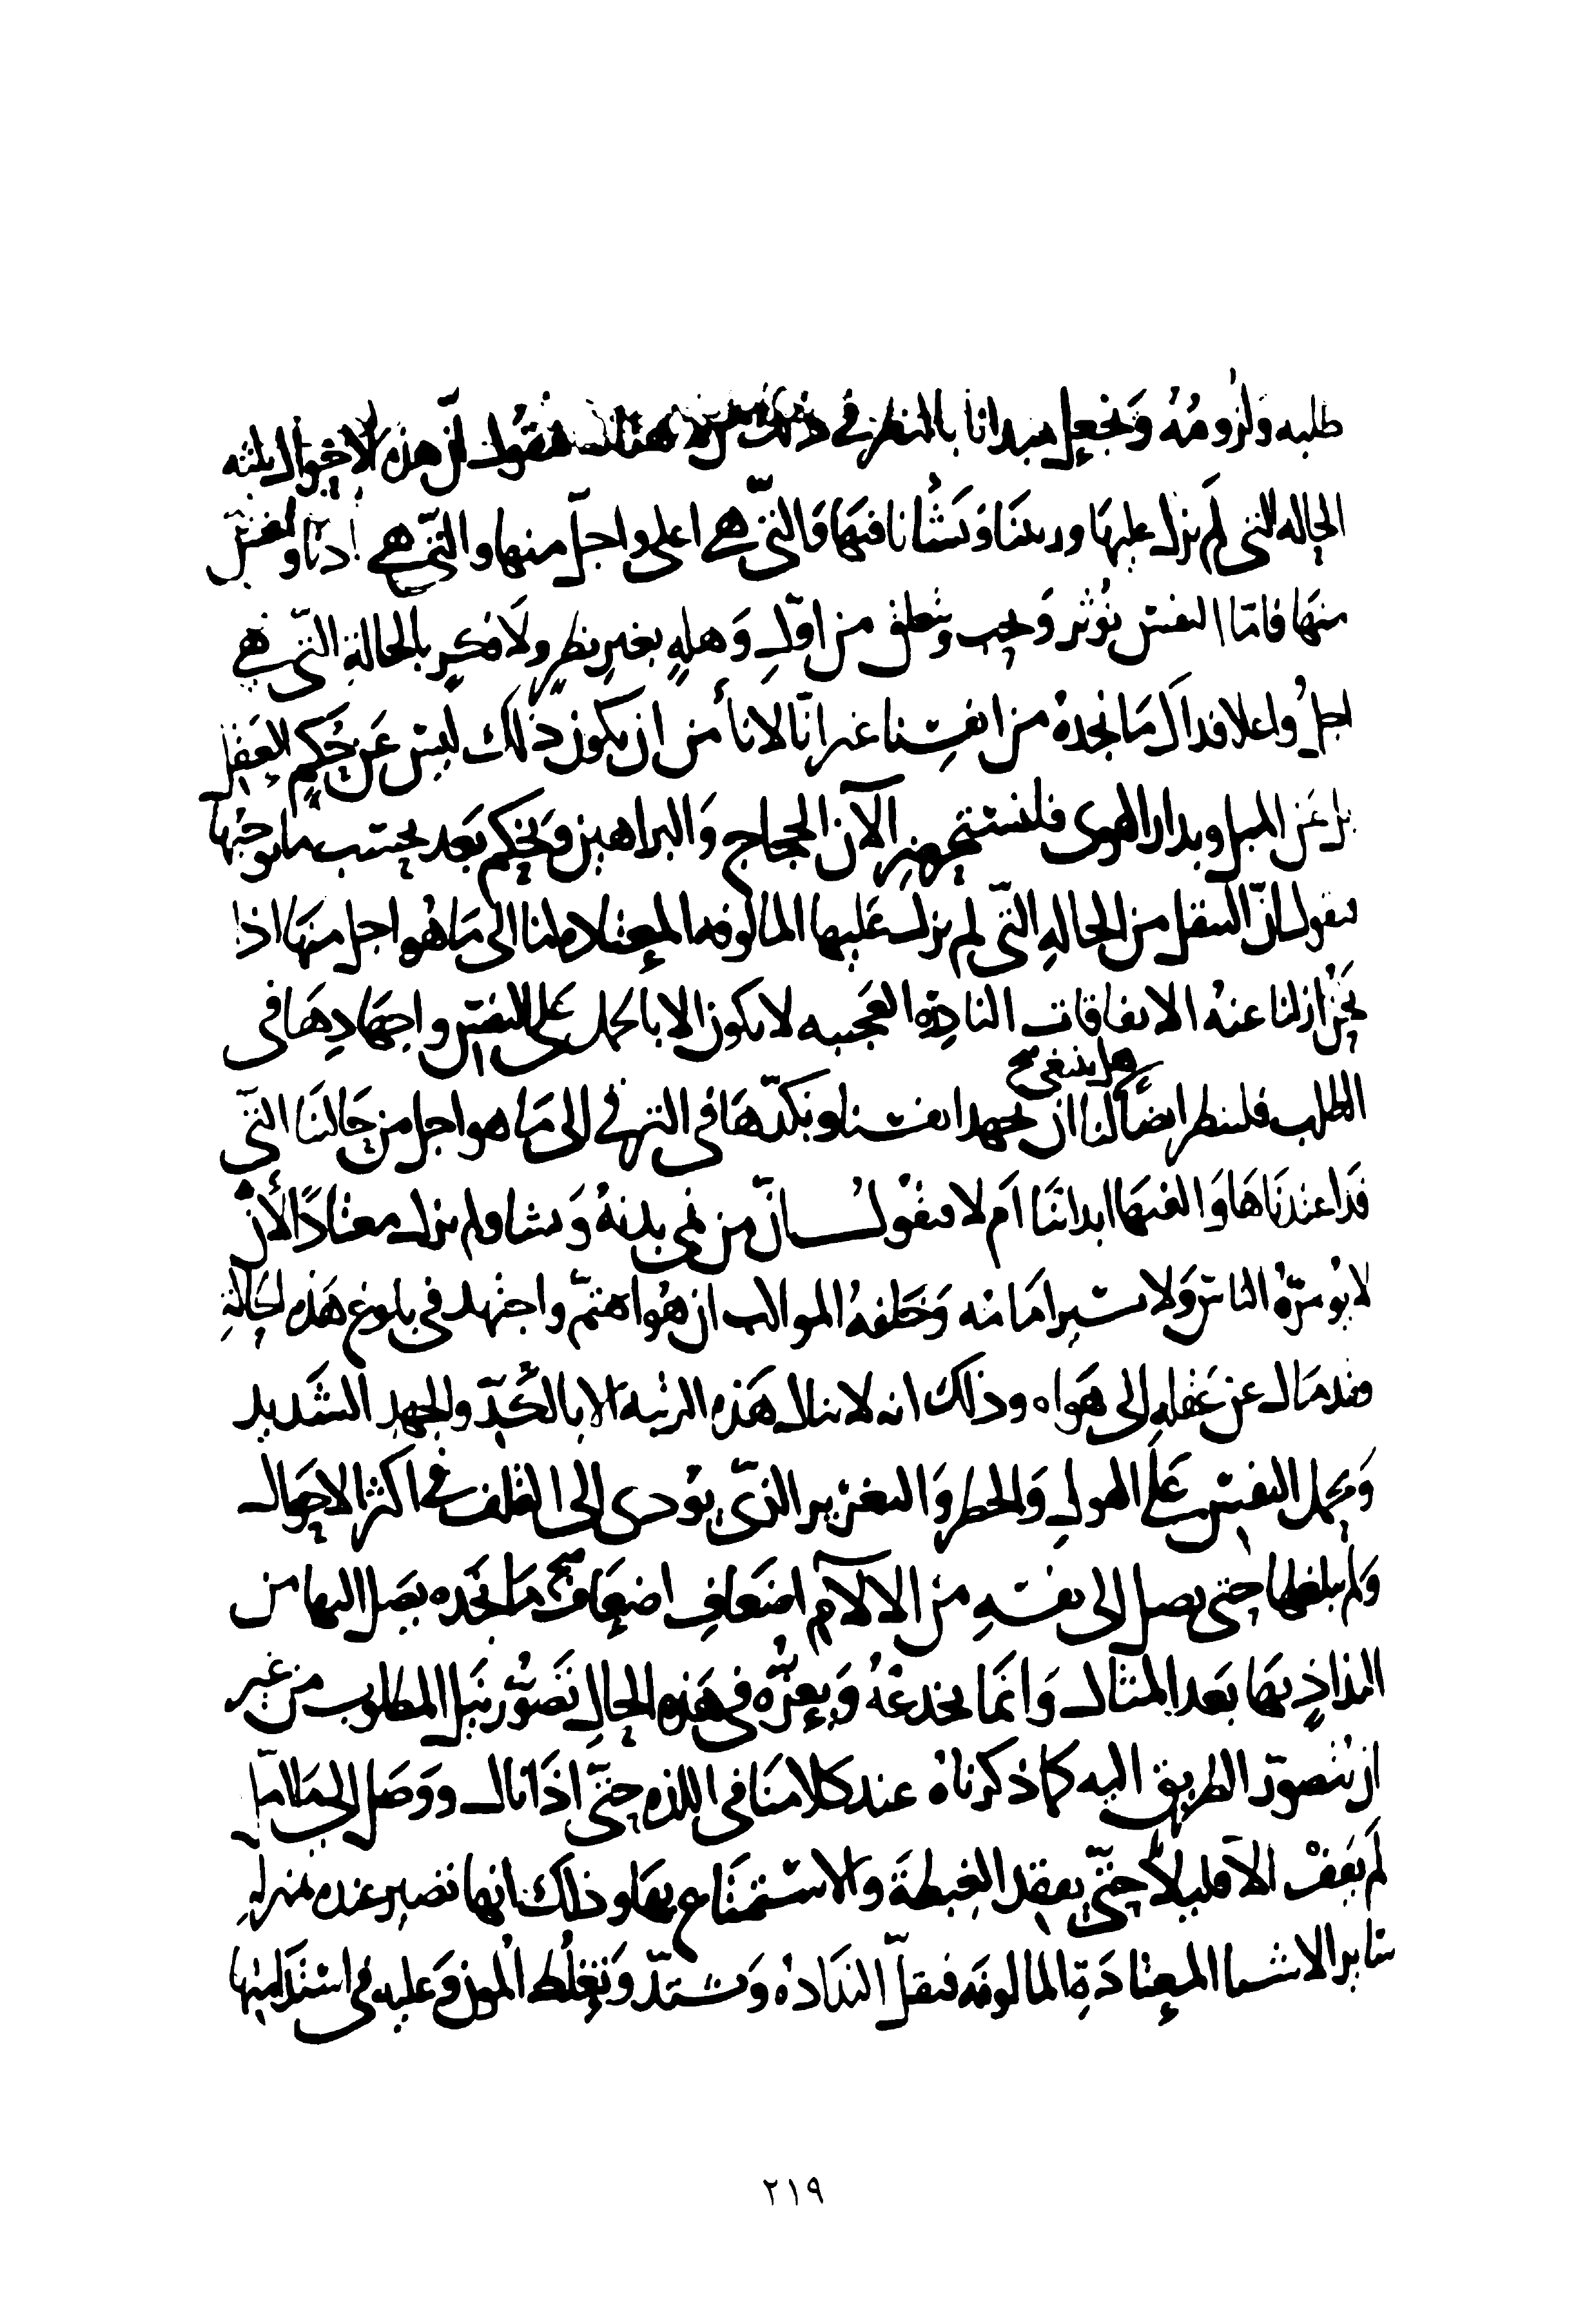 طلبه ولزومه ونجعل مبدانا بالنظر في ذلك من هنالك فنقول ان هذه الاحوال ثلثه
الحاله التي لم نزل عليها وربينا ونشانا فيها فالتي هي اعلى واجل منها والتي هي ادنا واخس
منها فاما ان النفس تؤثر وتحب وتعلق من اول وهلة بغير نظر ولا فكر بالحالة التي هي
اجل واعلا فذاك ما نجده من انفسنا غير انا لا نأمن ان يكون ذلك ليس عن حكم العقل
بل عن الميل وبدار الهوى فلنستحضر الآن الحجاج والبراهين ونحكم بعد بحسب ما توجبها
نقول ان التنقل من الحالة التي لم نزل عليها المالوفه المعتاده لنا الى ما هو اجل منها اذا
نحن ازلنا عنه الاتفاقات النادرة العجيبه لا يكون الا بالحمل على النفس واجهادها في
الطلب فلننظر ايضا هل ينبغي صح لنا ان نجهد انفسنا ونكدها في الترقي الى ما هو اجل من حالنا التي
قد اعتدناها والفتها ابداننا ام لا فنقول ان من نمى بدنه ونشا ولم يزل معتادا لأن
لا يؤمره الناس ولا تسير امامه وخلفه المواكب ان هو اهتم واجتهد في بلوغ هذه الحالة
فقد مال عن عقله الى هواه وذلك انه لا ينال هذه الرتبة الا بالكد والجهد الشديد
وحمل النفس على الهول والخطر والتغرير الذي يؤدي الى التلف في اكثر الاحوال
ولم يبلغها حتى يصل الى نفسه من الالآم اضعاف اضعاف صح ما نجده يصل اليها من
التذاذ بها بعد المنال وانما يخدعه ويغره في هذه الحال تصور نيل المطلوب من غير
ان يتصور الطريق اليه كما ذكرناه عند كلامنا في اللذه حتى اذا نال ووصل الى ما امل
لم يقف الا قليلا حتى يفقد الغبطة والاستمتاع بها وذلك انها تصير عنده بمنزلة
سائر الاشيا المعتادة المالوفه فيقل التذاذه وتشتد وتغلظ المؤن عليه في استدامتها
٢١٩